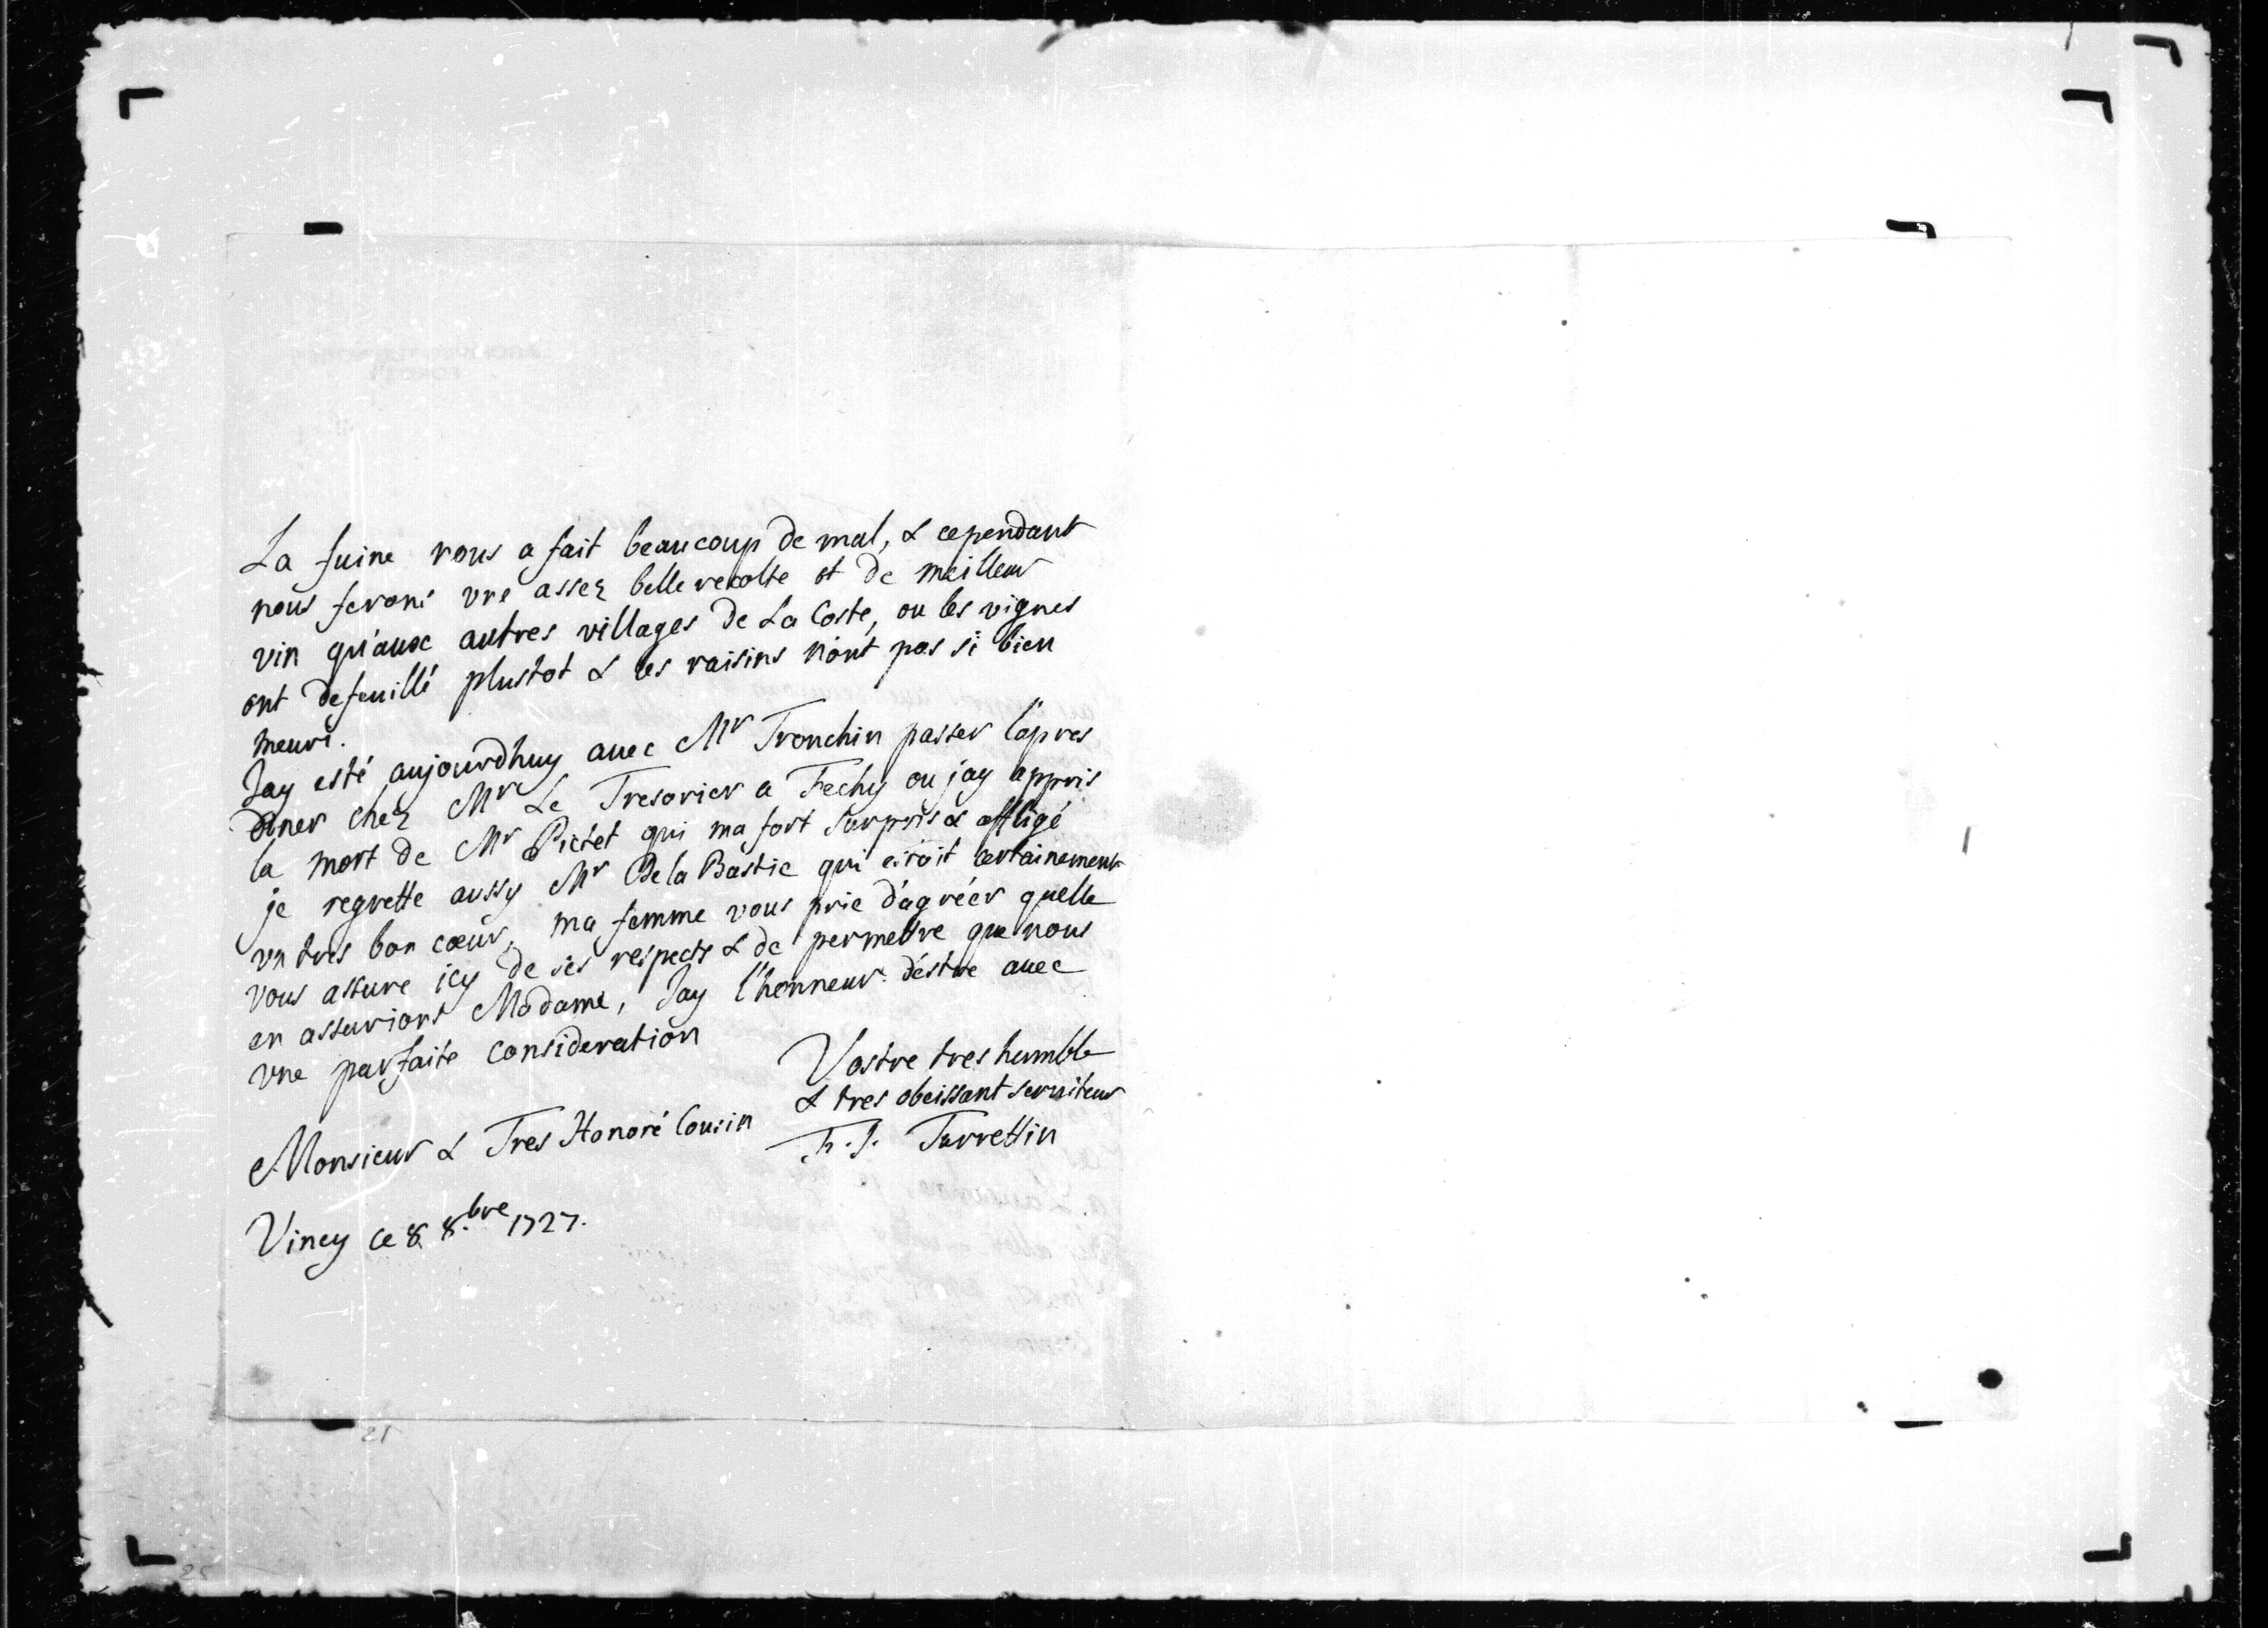 La fuine vous a fait beaucoup de mal, & cependant
nous ferons vne assez belle recolte et de meilleur
vin qu'aux autres villages de La Coste, ou les vignes
ont defeuillé plustot & les raisins n'ont pas si bien
meuri.
Jay esté aujourdhuy auec Mr Tronchin passer l'apres
diner chez Mr Le Tresorier a Fechy ou jay appris
la mort de Mr Pictet qui ma fort surpris & affligé
je regrette aussy Mr De la Bastie qui estoit certainement
vn tres bon cœur, ma femme vous prie d'agréer quelle
vous assure icy de ses respects & de permettre que nous
en assurions Madame, Jay l'honneur d'estre auec
vne parfaite consideration
Monsieur & Tres Honoré Cousin
Vostre tres humble
& tres obeissant seruiteur
Turrettin
Vincy ce 8 8.bre 1727.